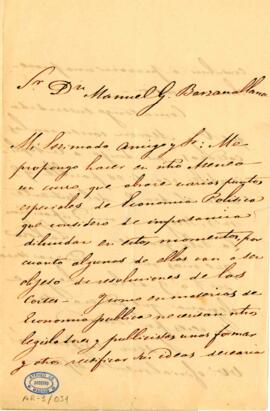 Sr Dn Manuel G. Barzanallana
Mi estimado amigo y Sr: Me
propongo hacer en ntro Ateneo
un curso que abrace varios puntos
especiales de Economia Politica
que considero de importancia
dilucidar en estos momentos, por
cuanto algunos de ellos van a ser
objeto de resoluciones de las
Cortes - Y como en materias de
Economia publica necesitan ntros
legisladores y publicistas unos formar
y otros rectificar sus ideas
AR-3/031